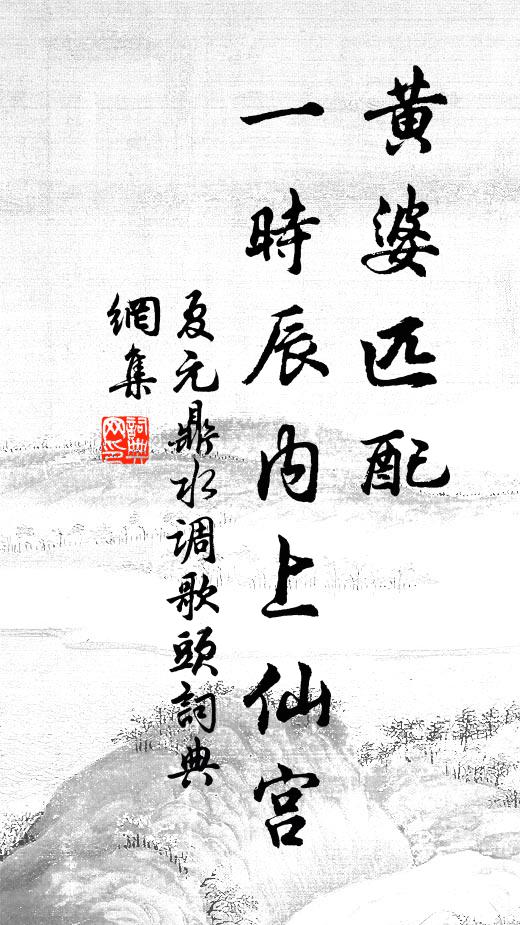 黄婆匹配
一時辰内上仙宫
夏元鼎水调歌頭詞典
網集
詞典
网印